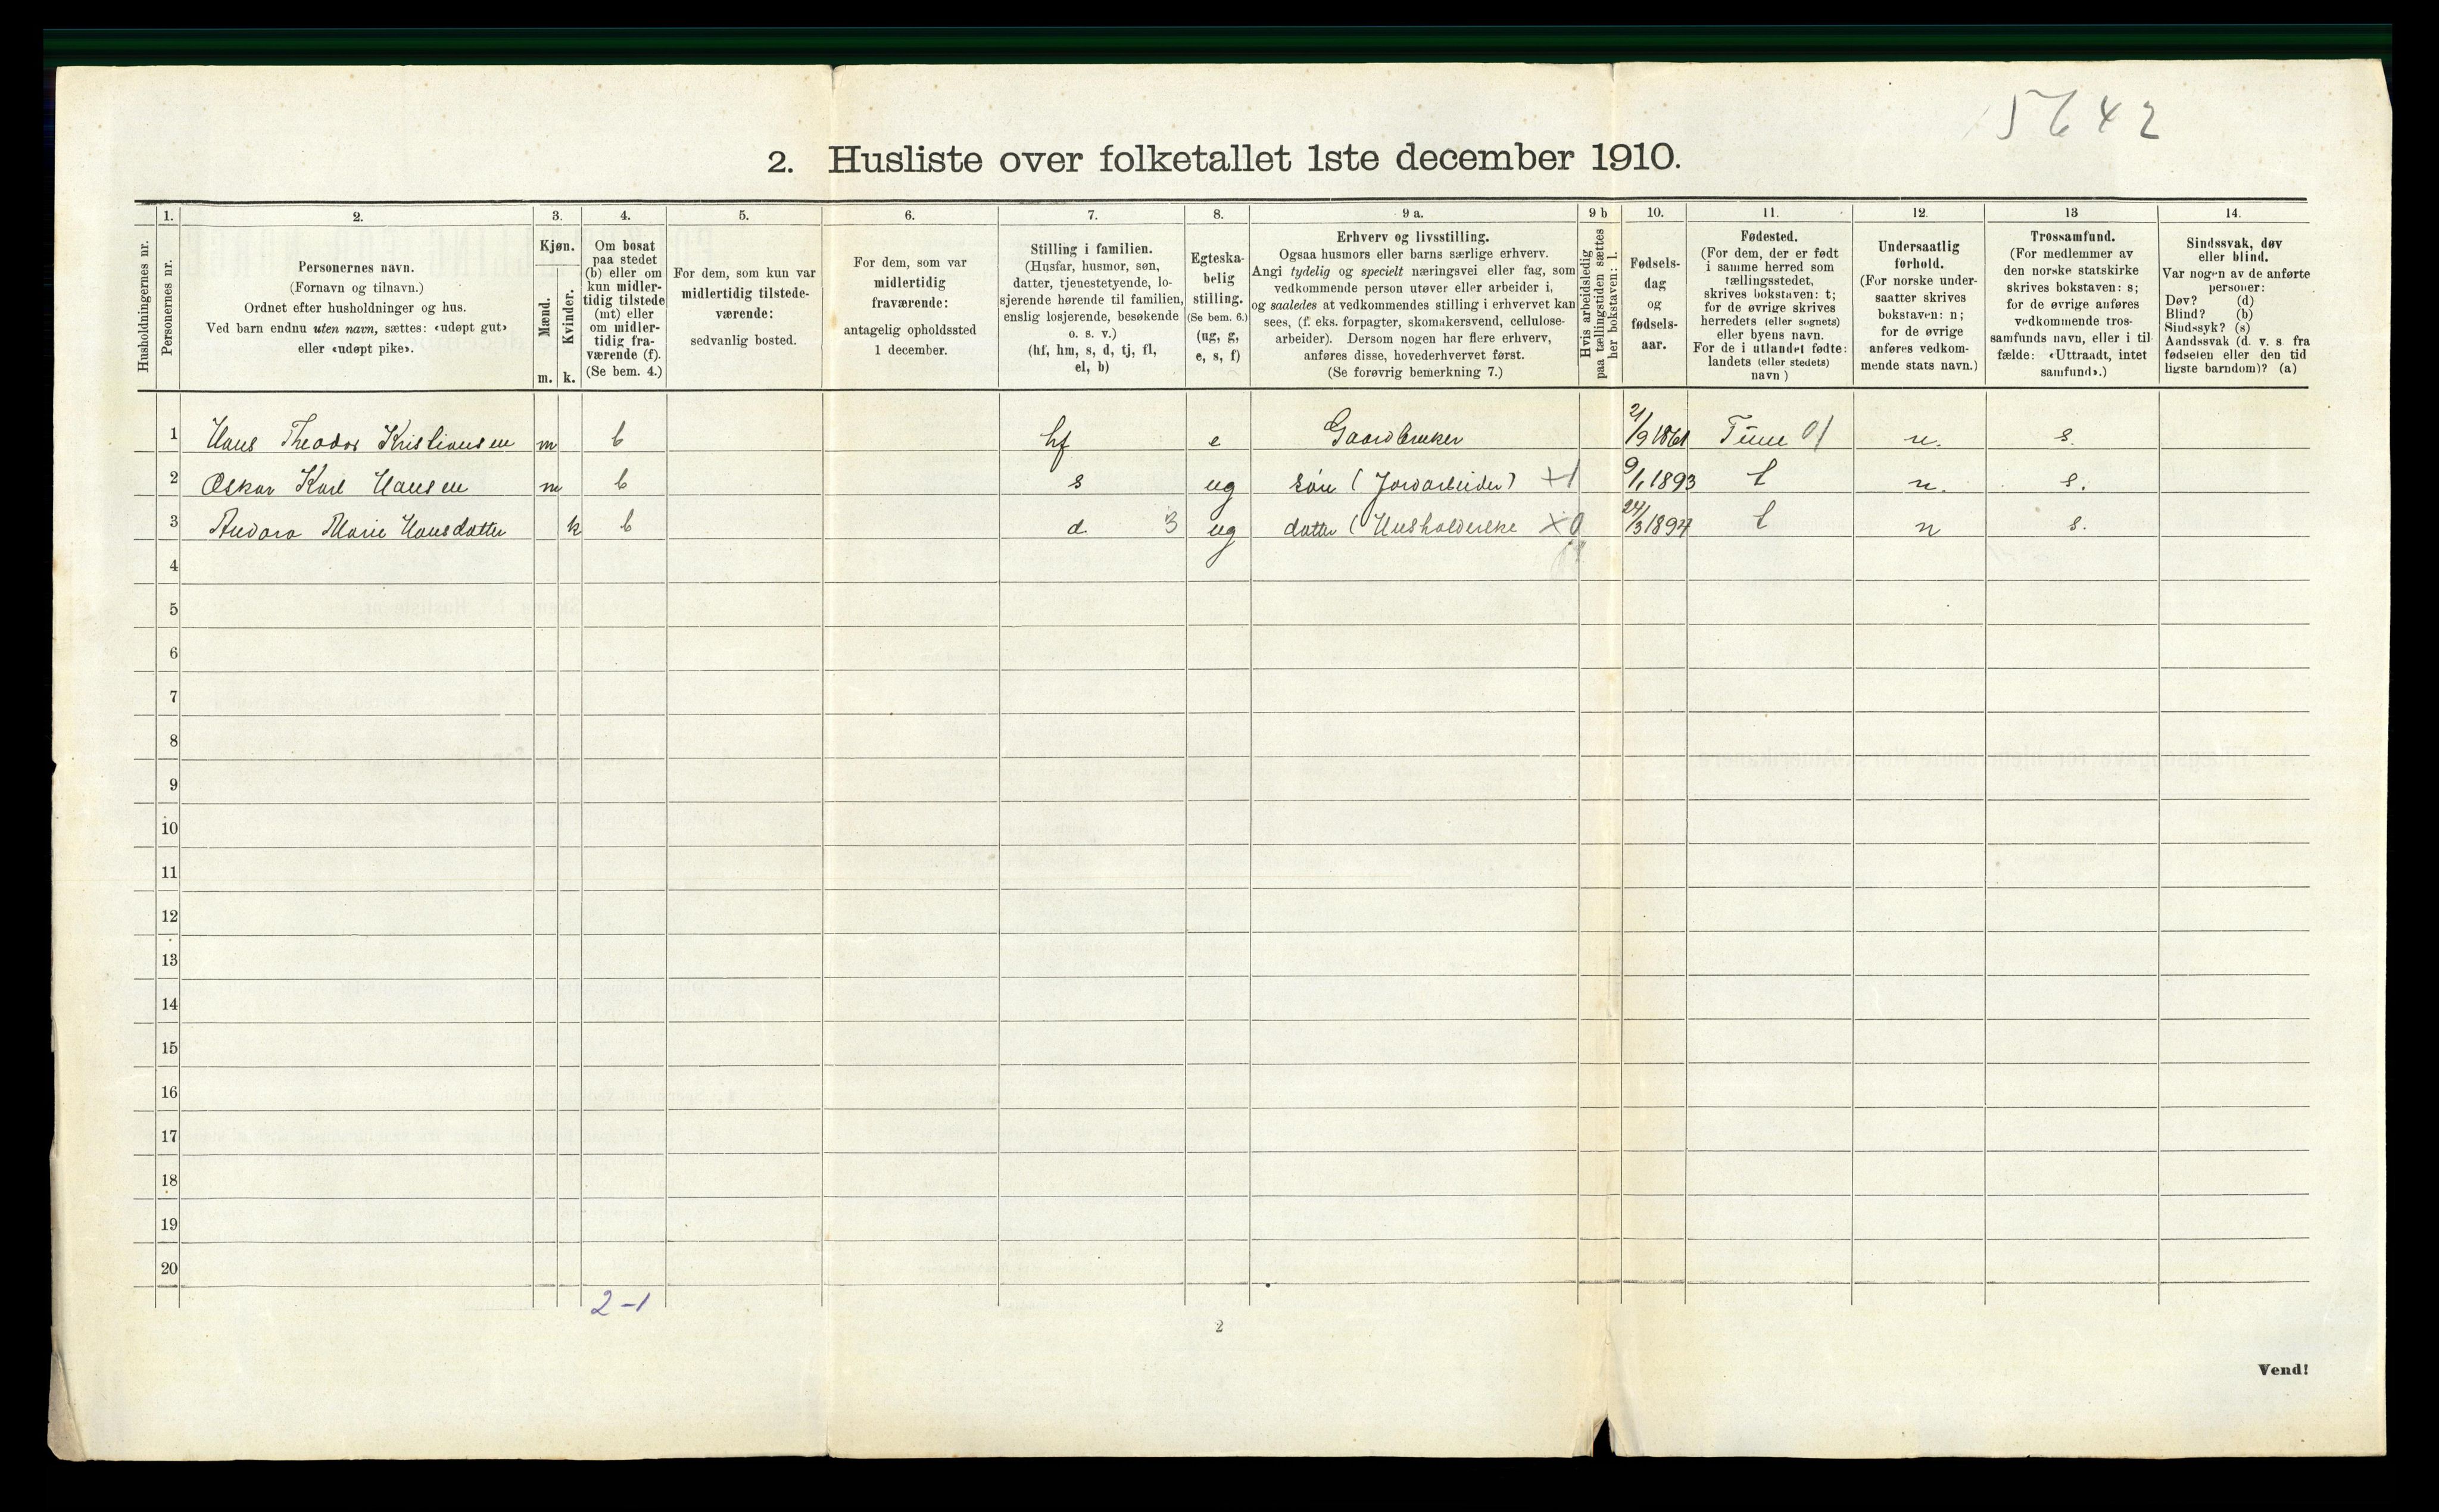 5642
2. Husliste over folketallet 1ste december 1910.
Husholdningernes nr.
1.
Personernes nr.
2.
Personernes navn.
(Fornavn og tilnavn.)
Ordnet efter husholdninger og hus.
Ved barn endnu uten navn, sættes: «udøpt gut»
eller «udøpt pike».
3.
Kjøn.
Mænd.
Kvinder.
m. k.
4.
Om bosat
paa stedet
(b) eller om
kun midler-
tidig tilstede
(mt) eller
om midler-
tidig fra-
værende (f).
(Se bem. 4.)
5.
For dem, som kun var
midlertidig tilstede-
værende:
sedvanlig bosted.
6.
For dem, som var
midlertidig
fraværende:
antagelig opholdssted
1 december.
7.
Stilling i familien.
(Husfar, husmor, søn,
datter, tjenestetyende, lo-
sjerende hørende til familien,
enslig losjerende, besøkende
o. s. v.)
(hf, hm, s, d, tj, fl,
el, b)
8.
Egteska-
belig
stilling.
(Se bem. 6.)
(ug, g,
e, s, f)
9 a.
Erhverv og livsstilling.
Ogsaa husmors eller barns særlige erhverv.
Angi tydelig og specielt næringsvei eller fag, som
vedkommende person utøver eller arbeider i,
og saaledes at vedkommendes stilling i erhvervet kan
sees, (f. eks. forpagter, skomakersvend, cellulose-
arbeider). Dersom nogen har flere erhverv,
anføres disse, hovederhvervet først.
(Se forøvrig bemerkning 7.)
9 b
Hvis arbeidsledig
paa tællingstiden sættes
her bokstaven: l.
10.
Fødsels-
dag
og
fødsels-
aar.
11.
Fødested.
(For dem, der er født
i samme herred som
tællingsstedet,
skrives bokstaven: t;
for de øvrige skrives
herredets (eller sognets)
eller byens navn.
For de i utlandet fødte:
landets (eller stedets)
navn)
12.
Undersaatlig
forhold.
(For norske under-
saatter skrives
bokstaven: n;
for de øvrige
anføres vedkom-
mende stats navn.)
13
Trossamfund.
(For medlemmer av
den norske statskirke
skrives bokstaven: s;
for de øvrige anføres
vedkommende tros-
samfunds navn, eller i til-
fælde: «Uttraadt, intet
samfund».)
14.
Sindssvak, døv
eller blind.
Var nogen av de anførte
personer:
Døv? (d)
Blind? (b)
Sindssyk? (s)
Aandssvak (d. v. s. fra
fødselen eller den tid
ligste barndom)? (a)
1 Hans Theodor Kristiansen m b hf e Gaardbruker 21/9 1861 Tune 01 n. s.
2 Oskar Karl Hansen m b s ug søn (Jordarbeider) x1 9/1 1893 t n. s.
3 Andara Marie Hansdatter k b d. 3 ug datter (Husholderske x0 24/3 1897 t n s.
4
5
6
7
8
9
10
11
12
13
14
15
16
17
18
19
20
2-1
2
Vend!